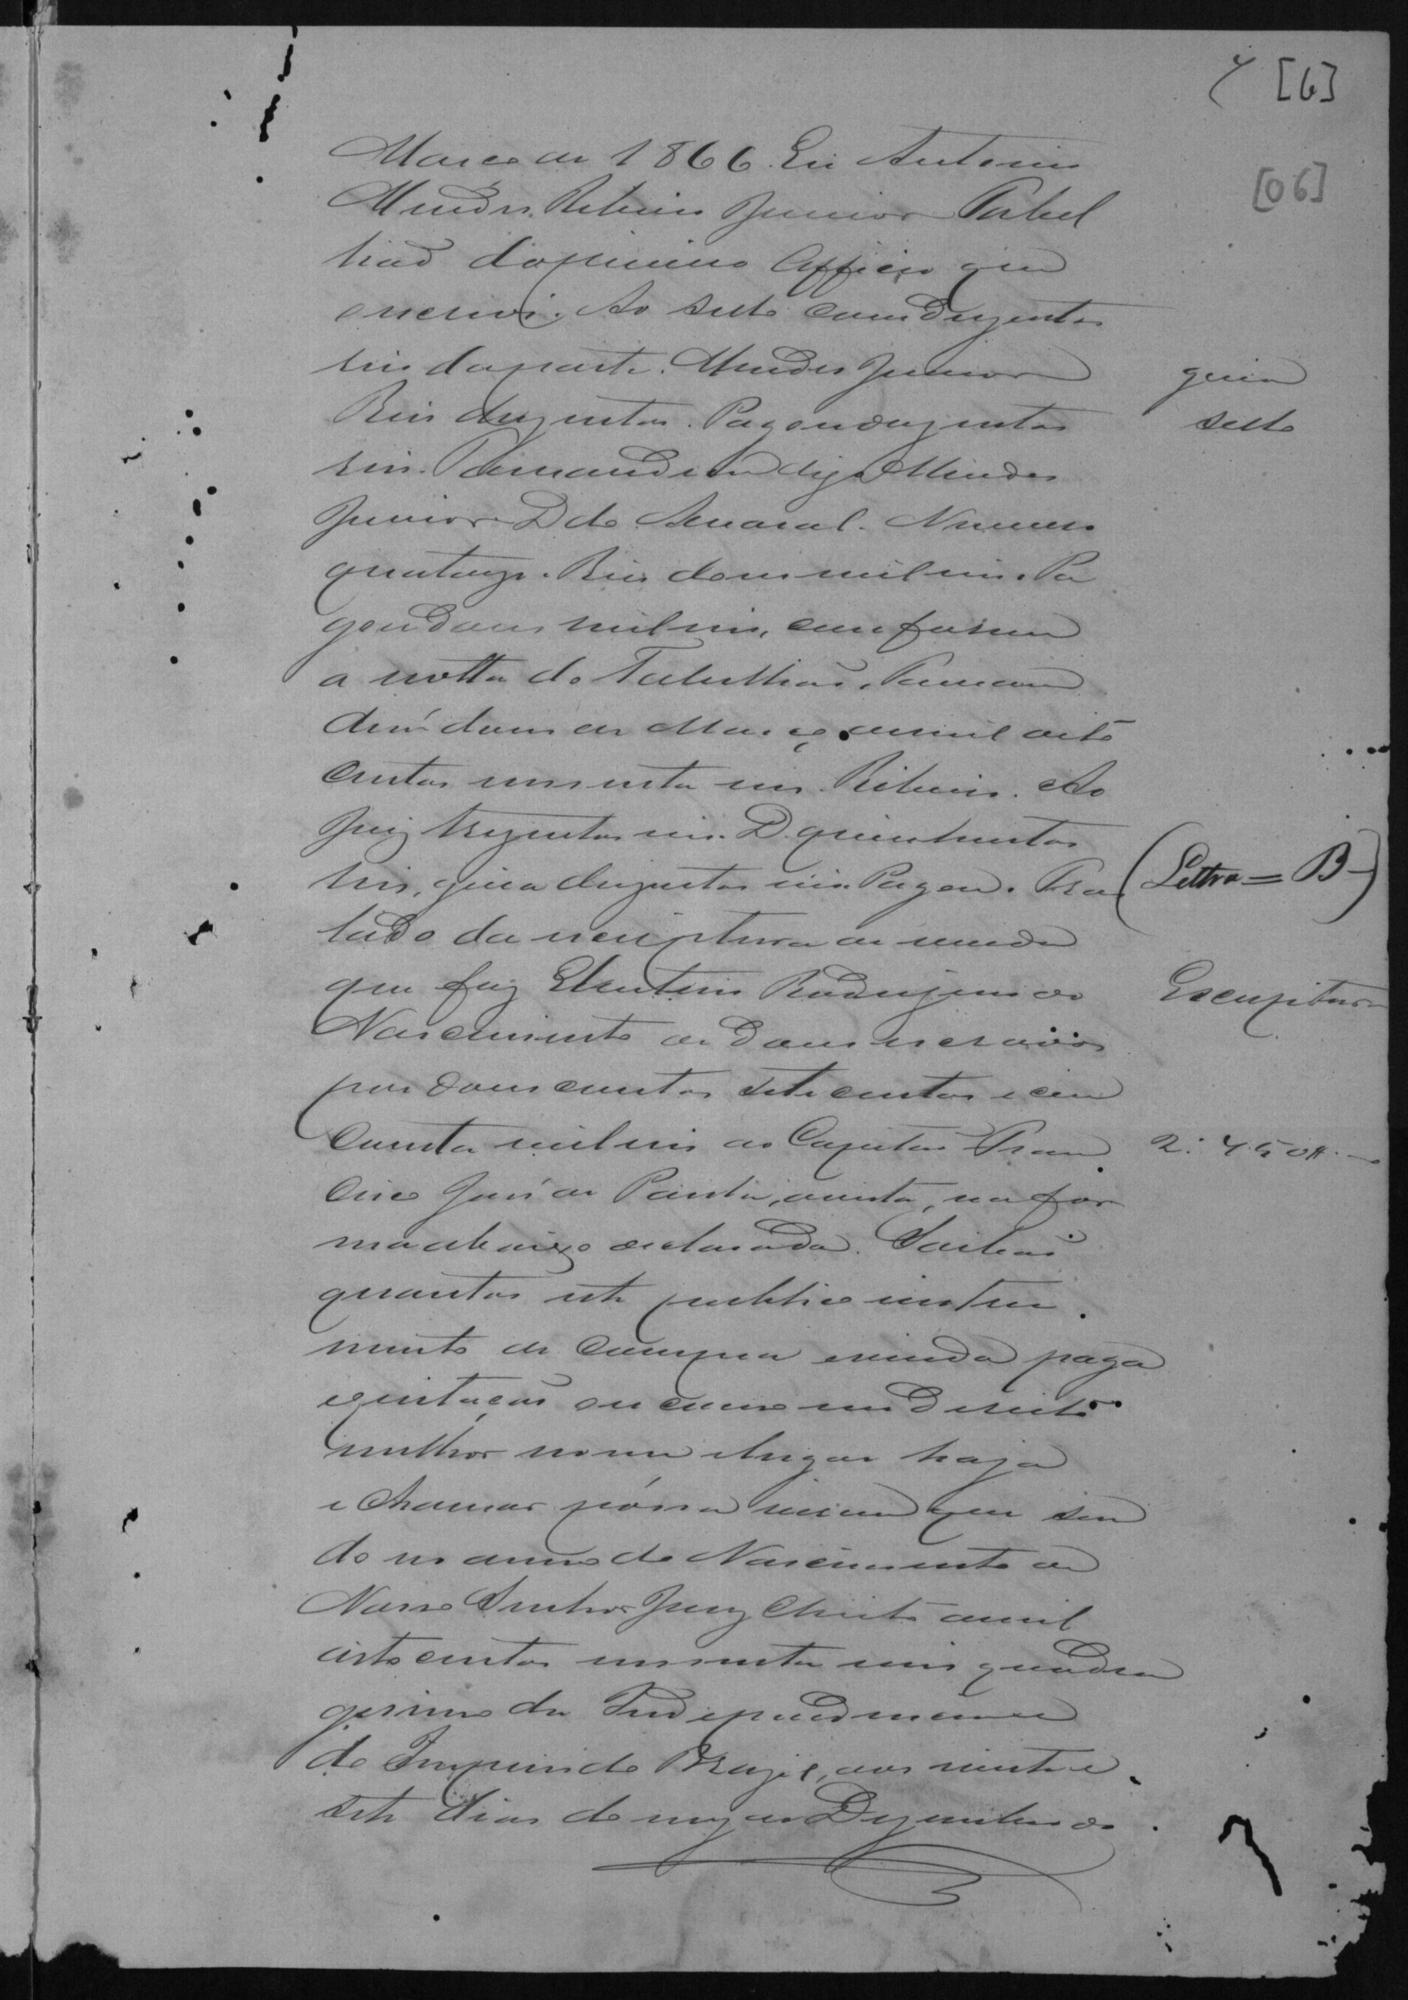 [6]
[06]
Março de 1866. Eu Antonio
Mendes Ribeiro Junior Tabel
lião do primeiro Officio que
escrevi. Ao sello com dusentos
reis da parte. Mendes Junior
guia
sello
Reis dusentos. Pagou dusentos
reis. digo Mendes
Junior D do Amaral. Numero
quatorze. Reis dous mil reis. Pa
gou dous mil reis, conforme
a notta do Tabellião.
dous de Março de mil oito
centos sessenta seis. Ribeiro. Ao
Juiz trezentos reis. D. quinhentos
reis, guia dusentos reis. Pagou. Tras
(Lettra = B -)
lado da escriptura de venda
que faz Eleuterio Rodrigues do
Escriptura
Nascimento de dous escravos
por dous contos sete centos e cin
coenta mil reis ao Capitão Fran
2:750#
cisco José da Penha, avista, na for
ma abaixo declarada. Saibão
quantos este publico instru
mento de compra e venda paga
e quitação ou como em direito
melhor nome e lugar haja
e chamar póssa virem que sen
do no anno do Nascimento de
Nosso Senhor Jesus Christo de mil
oito centos sessenta seis quadra
gesimo da Independencia
do Imperio do Brazil, aos vinte e
sete dias do mez de Dezembro do